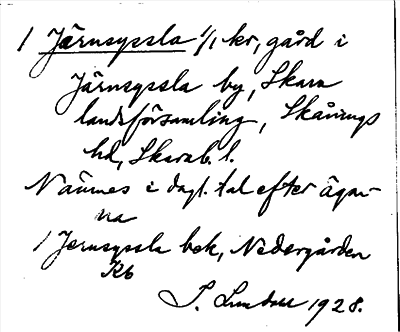 1 Järnsyssla 1/1 kr, gård i
Järnsyssla by, Skara
landsförsamling, Skånings
hd, Skarab. l.
Nämnes i dagl. tal efter ägar-
na
1 Jernsyssla bek, Nedergården
Kb
S. Lundahl 1928.